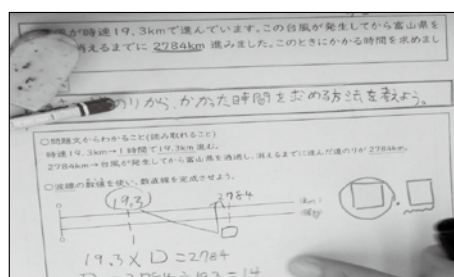 が時速19.3kmで進んでいます。この台風が発生してから富山県を
消えるまでに 2784km 進みました。このときにかかる時間を求めまし
のりから、かかった時間を求める方法を考えよう。
○問題文からわかること(読み取れること)
時速19.3km→1時間で19.3km進む。
2784km→台風が発生してから富山県を通過し、消えるまでに進んだ道のりが2784km。
○波線の数値を使い、数直線を完成させよう。
19.3 2784
0
0 1 □
19.3×□=2784